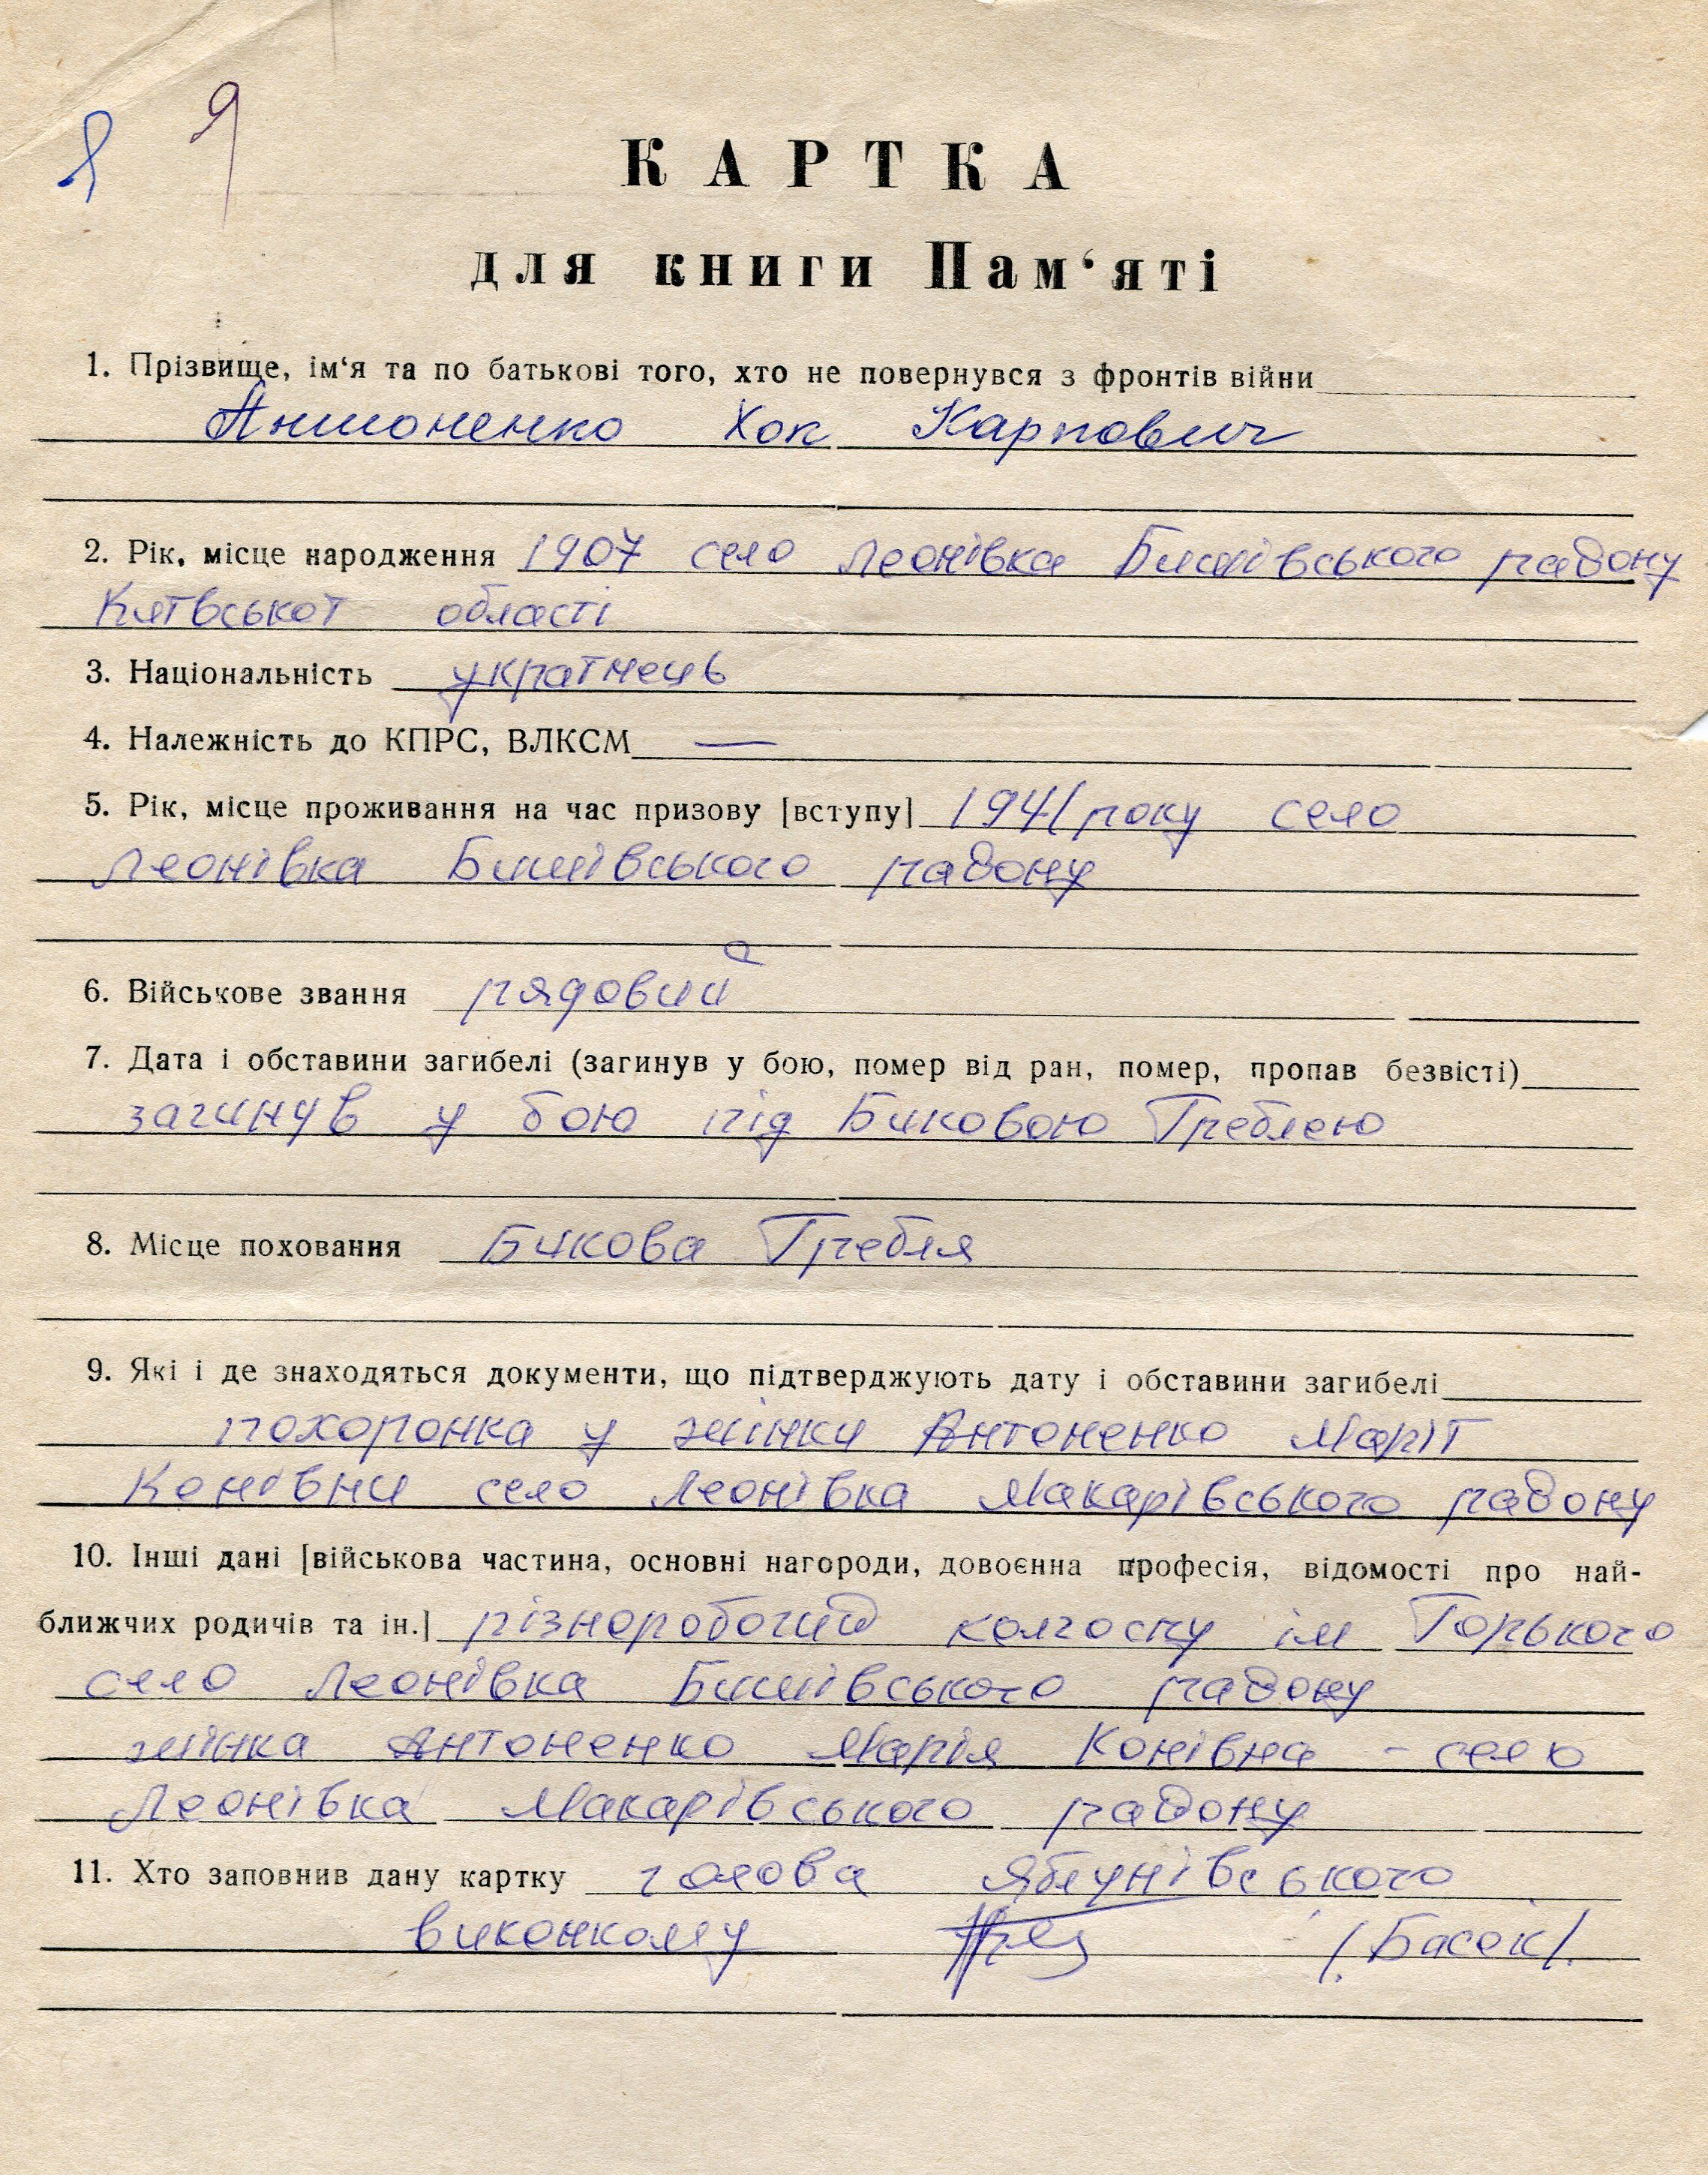 Я Я
КАРТКА
для книги Пам‘яті
1. Прізвище, ім‘я та по батькові того, хто не повернувся з фронтів війни
Антоненко Хок Карпович
2. Рік, місце народження 1907 село Леонівка Бишівського району
Київської області
3. Національність українець
4. Належність до КПРС, ВЛКСМ —
5. Рік, місце проживання на час призову [вступу] 1941 року село
Леонівка Бишівського району
6. Військове звання рядовий
7. Дата і обставини загибелі (загинув у бою, помер від ран, помер, пропав безвісті)
загинув у бою під Биковою Греблею
8. Місце поховання Бикова Гребля
9. Які і де знаходяться документи, що підтверджують дату і обставини загибелі
похоронка у жінки Антоненко Марії
Конівни село Леонівка Макарівського району
10. Інші дані [військова частина, основні нагороди, довоєнна професія, відомості про най-
ближчих родичів та ін.] різноробочий колгоспу ім Горького
село Леонівка Бишівського району
жінка Антоненко Марія Конівна - село
Леонівка Макарівського району
11. Хто заповнив дану картку голова Яблунівського
виконкому /Басок/.